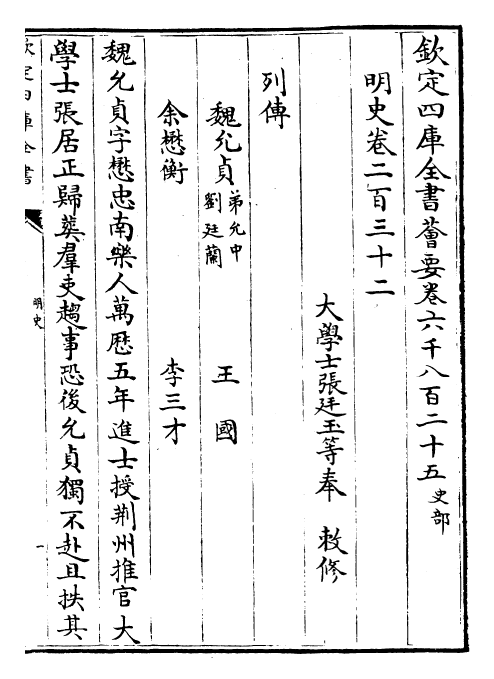 欽定四庫全書薈要卷六千八百二十五 史部
明史卷二百三十二
大學士張廷玉等奉 敕修
列傳
魏允貞 弟允中 劉廷蘭 王國
余懋衡 李三才
魏允貞字懋忠南樂人萬厯五年進士授荆州推官大
學士張居正歸葬羣吏趨事恐後允貞獨不赴且抶其
欽定四庫全書
明史
一